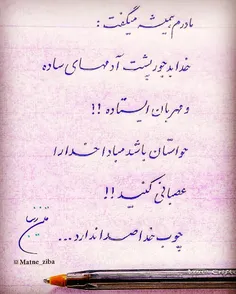 مادرم همیشه میگفت :
خدا بدجور پشت آدمهای ساده
و مهربان ایستاده !!
حواستان باشد مبادا خدا را
عصبانی کنید !!
چوب خدا صدا ندارد...
متن زیبا
@Matne_ziba